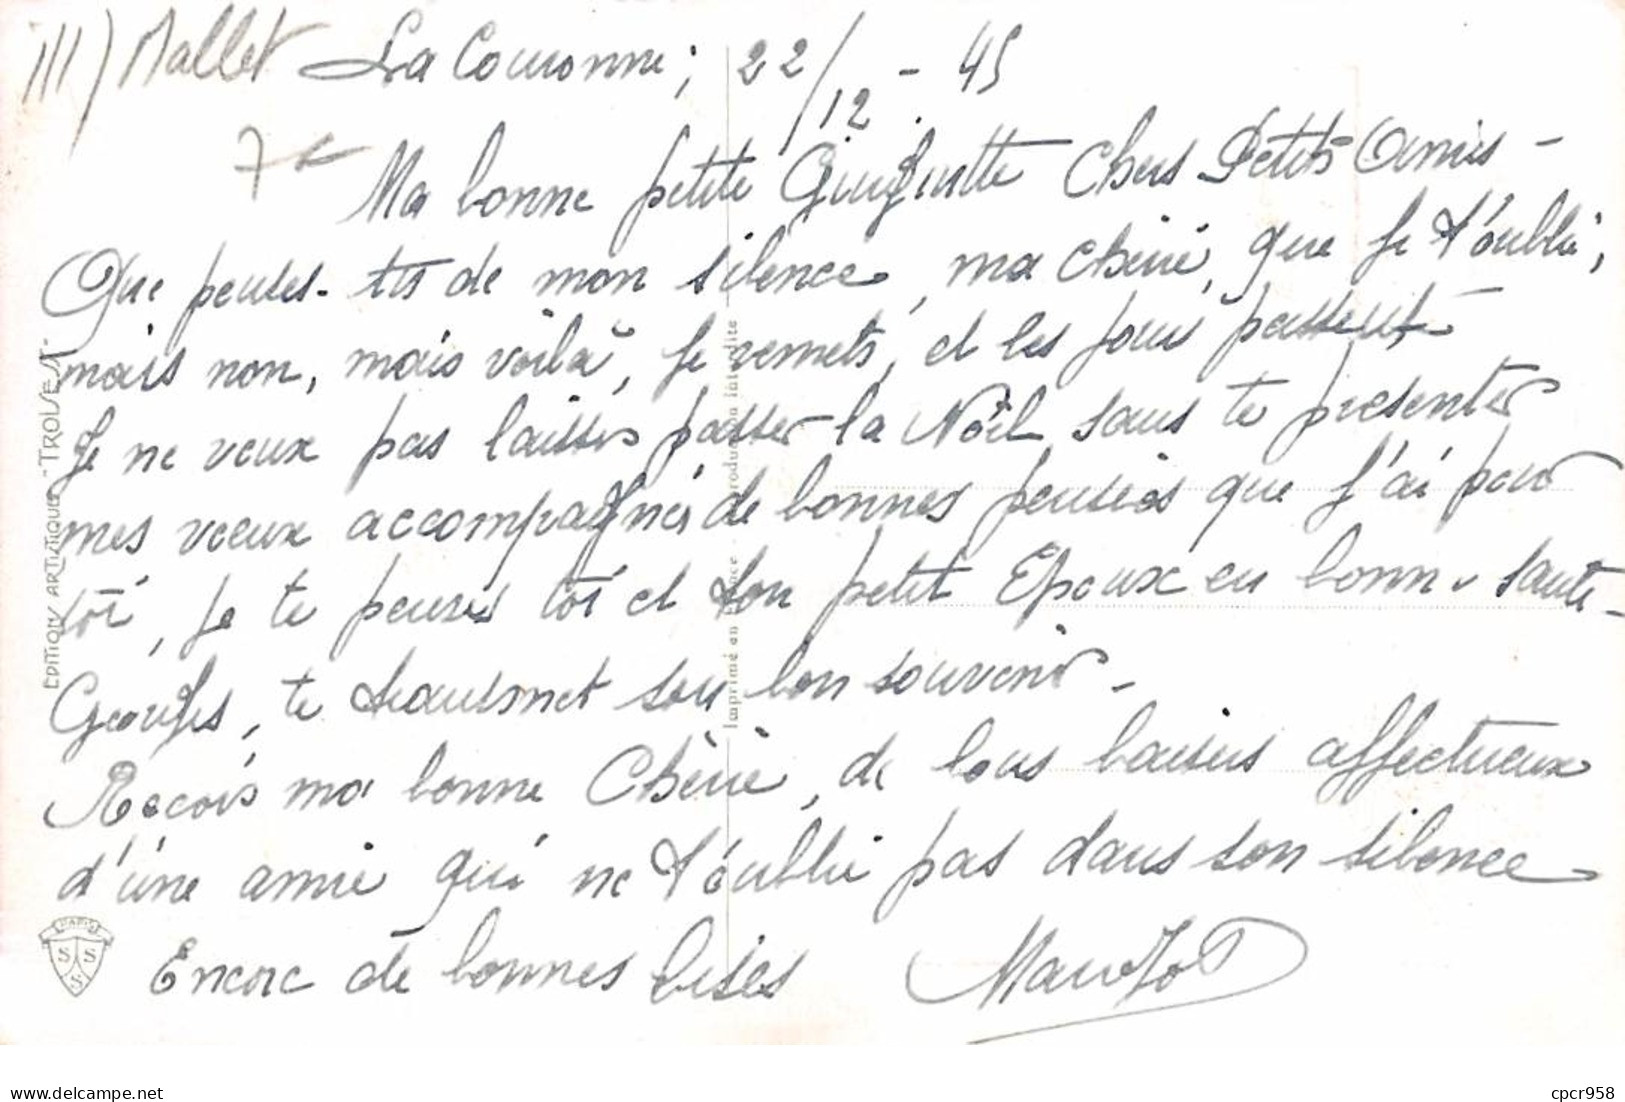 III) Mallet La Couronne; 22/12 - 45
Ma bonne petite Guiguitte Chers Petits Amis -
Que penses-tu de mon silence, ma chérie, que je t'oublie;
mais non, mais voilà, je remets, et les jours passent
Je ne veux pas laisser passer la Noël sans te présenter
mes voeux accompagnés de bonnes pensées que j'ai pour
toi, je te pense toi et ton petit Epoux en bonne santé -
Georges, te transmet son bon souvenir -
Reçois ma bonne Chérie, de bons baisers affectueux
d'une amie qui ne t'oublie pas dans son silence
Encore de bonnes bises
EDITION ARTISTIQUE "TROISEST"
Imprimé en France - Reproduction interdite
PARIS
S S
S
delcampe.net
cpcr958